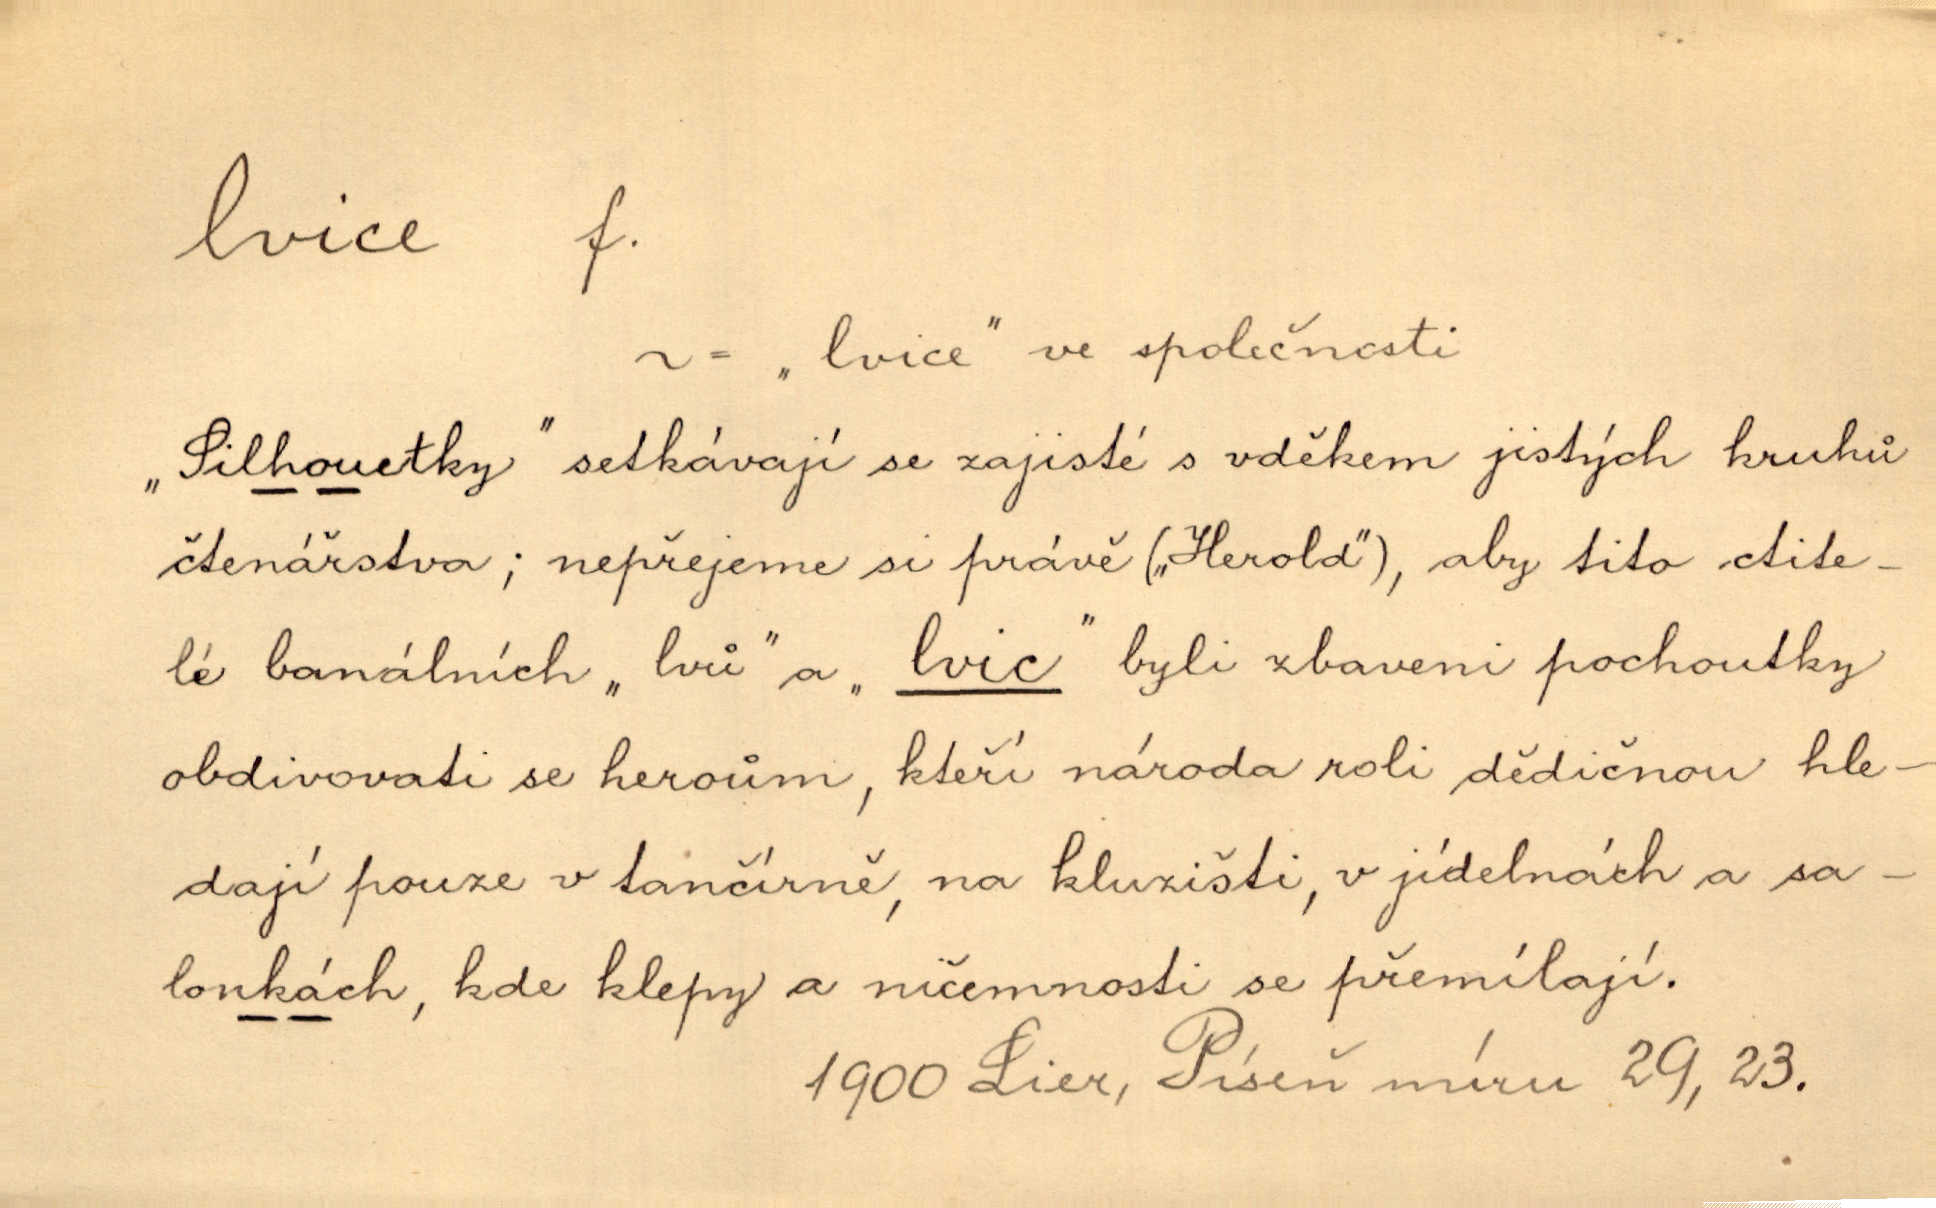 lvice f.
~ = „lvice" ve společnosti
„Silhouetky" setkávají se zajisté s vděkem jistých kruhů
čtenářstva; nepřejeme si právě („Herold"), aby tito ctite-
lé banálních „lvů" a „lvic" byli zbaveni pochoutky
obdivovati se heroům, kteří národa roli dědičnou hle-
dají pouze v tančírně, na kluzišti, v jídelnách a sa-
lonkách, kde klepy a ničemnosti se přemílají.
1900 Lier, Píseň míru 29, 23.